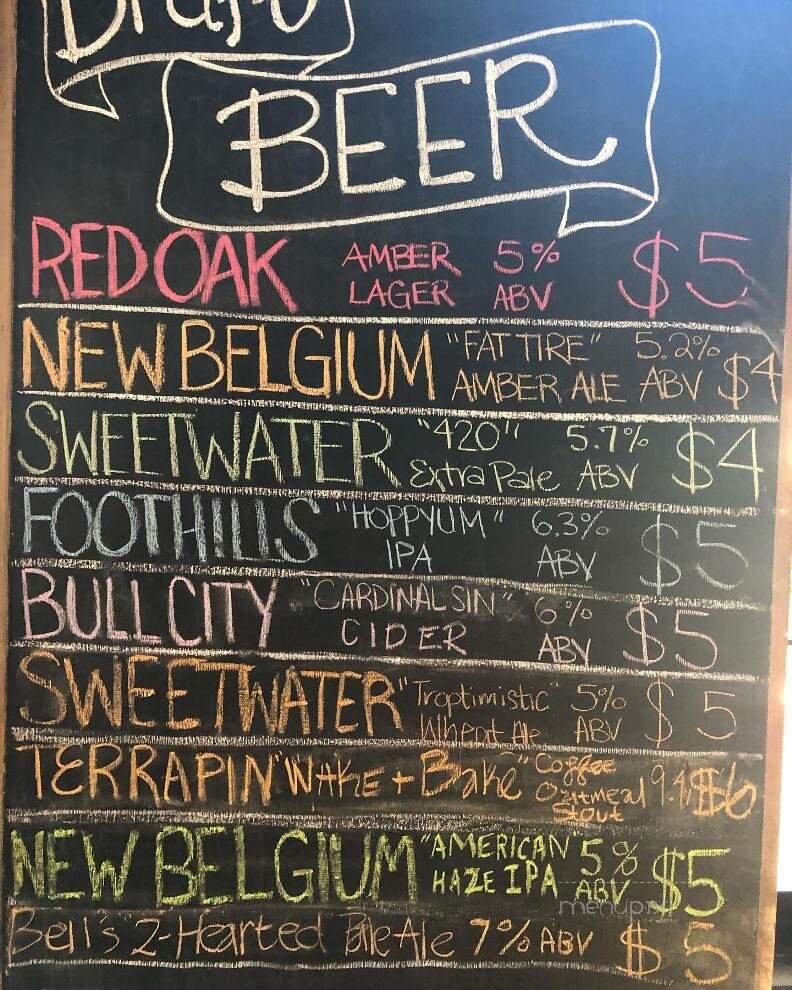 Draft
BEER
RED OAK AMBER LAGER 5% ABV $5
NEW BELGIUM "FAT TIRE" AMBER ALE 5.2% ABV $4
SWEETWATER "420" Extra Pale 5.7% ABV $4
FOOTHILLS "HOPPYUM" IPA 6.3% ABV $5
BULL CITY "CARDINAL SIN" CIDER 6% ABV $5
SWEETWATER "Troptimistic" Wheat Ale 5% ABV $5
TERRAPIN "WAKE + Bake" Coffee Oatmeal Stout 9.4% $6
NEW BELGIUM "AMERICAN" HAZE IPA 5% ABV $5
Bell's 2-Hearted Pale Ale 7% ABV $5